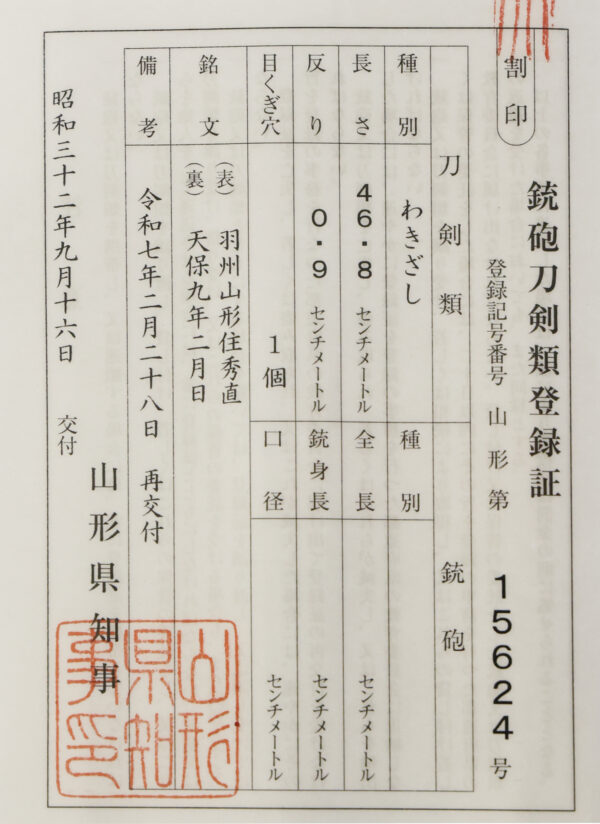 割印
銃砲刀剣類登録証
登録記号番号 山形第 15624 号
刀剣類
銃砲
種別
わきざし
種別
長さ
46.8 センチメートル
全長
センチメートル
反り
0.9 センチメートル
銃身長
センチメートル
目くぎ穴
1個
口径
センチメートル
銘文
(表) 羽州山形住秀直
(裏) 天保九年二月日
備考
令和七年二月二十八日 再交付
昭和三十二年九月十六日 交付
山形県知事
山形県知事印